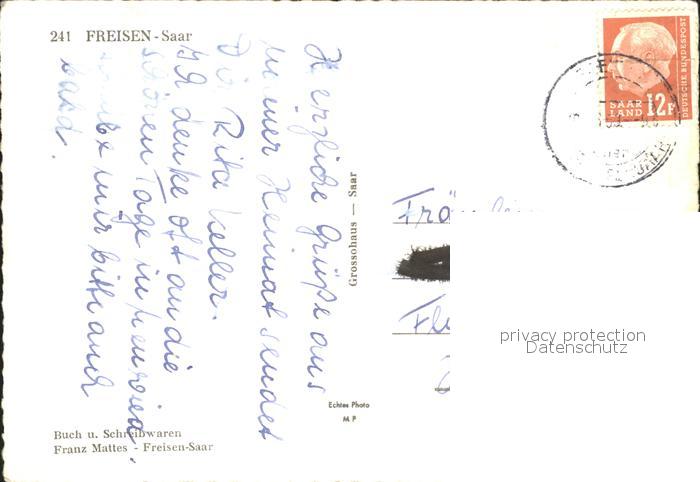 241 FREISEN - Saar
Herzliche Grüße aus
meiner Heimat sendet
Dir Rita Keller.
Ich denke oft an die
schönen Tage in
mir bitte auch
bald.
Grossohaus — Saar
Echtes Photo
M P
Buch u. Schreibwaren
Franz Mattes - Freisen-Saar
SAAR
LAND 12F
DEUTSCHE BUNDESPOST
Frö
Fl
privacy protection
Datenschutz